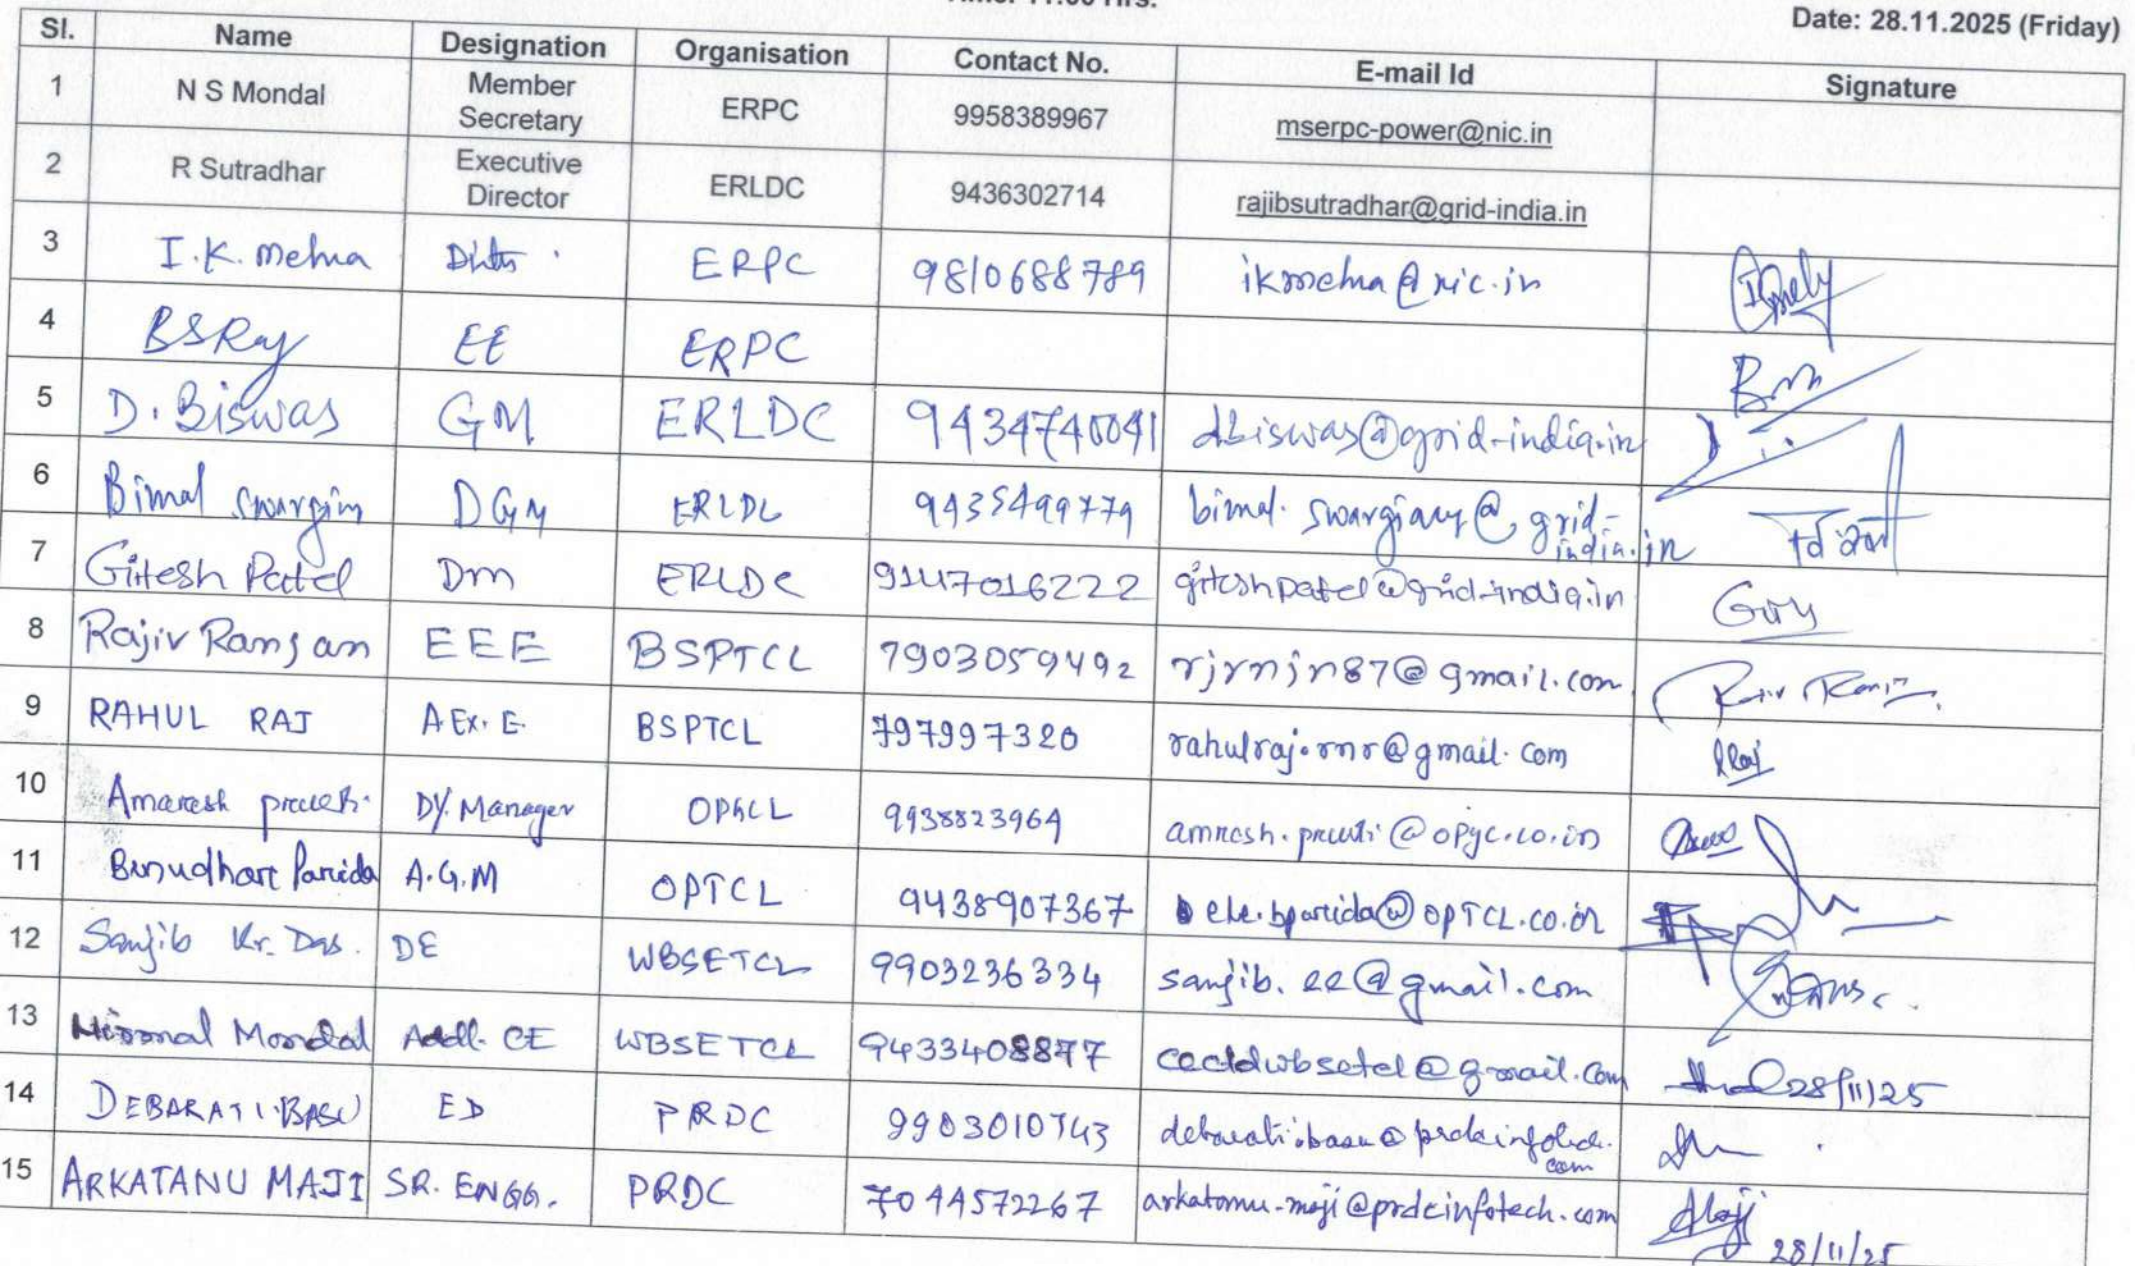 Date: 28.11.2025 (Friday)
Sl. Name Designation Organisation Contact No. E-mail Id Signature
1 N S Mondal Member Secretary ERPC 9958389967 mserpc-power@nic.in
2 R Sutradhar Executive Director ERLDC 9436302714 rajibsutradhar@grid-india.in
3 I.K. Mehra ERPC 9810688789 ikmehra@nic.in
4 BSRay EE ERPC
5 D. Biswas GM ERLDC 9434740041 dbiswas@grid-india.in
6 Bimal DGM ERLDC 9435499779 bimal.swargiary@grid-india.in
7 Gitesh Patel Dm ERLDC 9147016222 giteshpatel@grid-india.in
8 Rajiv Ranjan EEE BSPTCL 7903059492 rjrnjn87@gmail.com
9 RAHUL RAJ A.Ex.E. BSPTCL 797997320 rahulraj.rnr@gmail.com
10 Amaresh DY. Manager 9938823964
11 Parida A.G.M OPTCL 9438907367 ele.bparida@OPTCL.CO.in
12 Sanjib Kr. Das. DE WBSETCL 9903236334 sanjib.ee@gmail.com
13 Nirmal Mondal Addl. CE WBSETCL 9433408877 28/11/25
14 DEBARATI BASU ED PRDC
15 ARKATANU MAJI SR. ENGG. PRDC 7044572267 arkatanu.maji@prdcinfotech.com 28/11/25